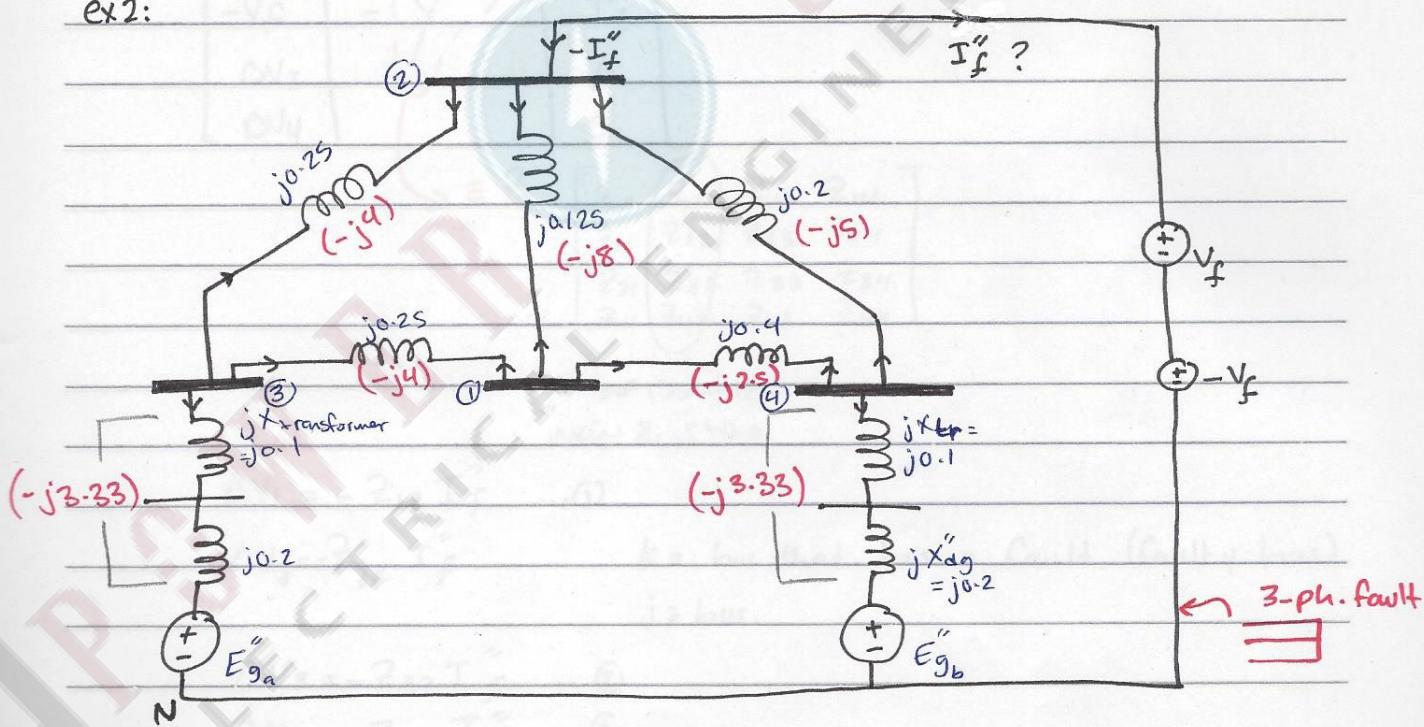 ex2:
-I"f
I"f ?
②
j0.25
(-j4)
j0.125
(-j8)
j0.2
(-j5)
Vf
-Vf
j0.25
(-j4)
j0.4
(-j2.5)
③
①
④
jXtransformer
=j0.1
(-j3.33)
j0.2
E"ga
jXtr=
j0.1
(-j3.33)
jX"dg
=j0.2
E"gb
3-ph. fault
N
P3WER
ELECTRICAL ENGINE